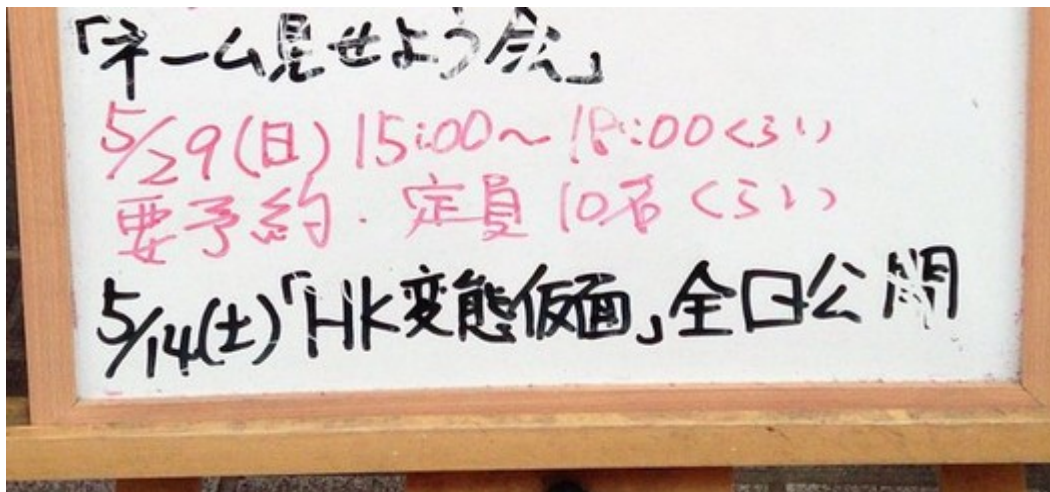 「ネーム見せよう会」
5/29(日) 15:00〜18:00くらい
要予約・定員10名くらい
5/14(土)「HK変態仮面」全日公開